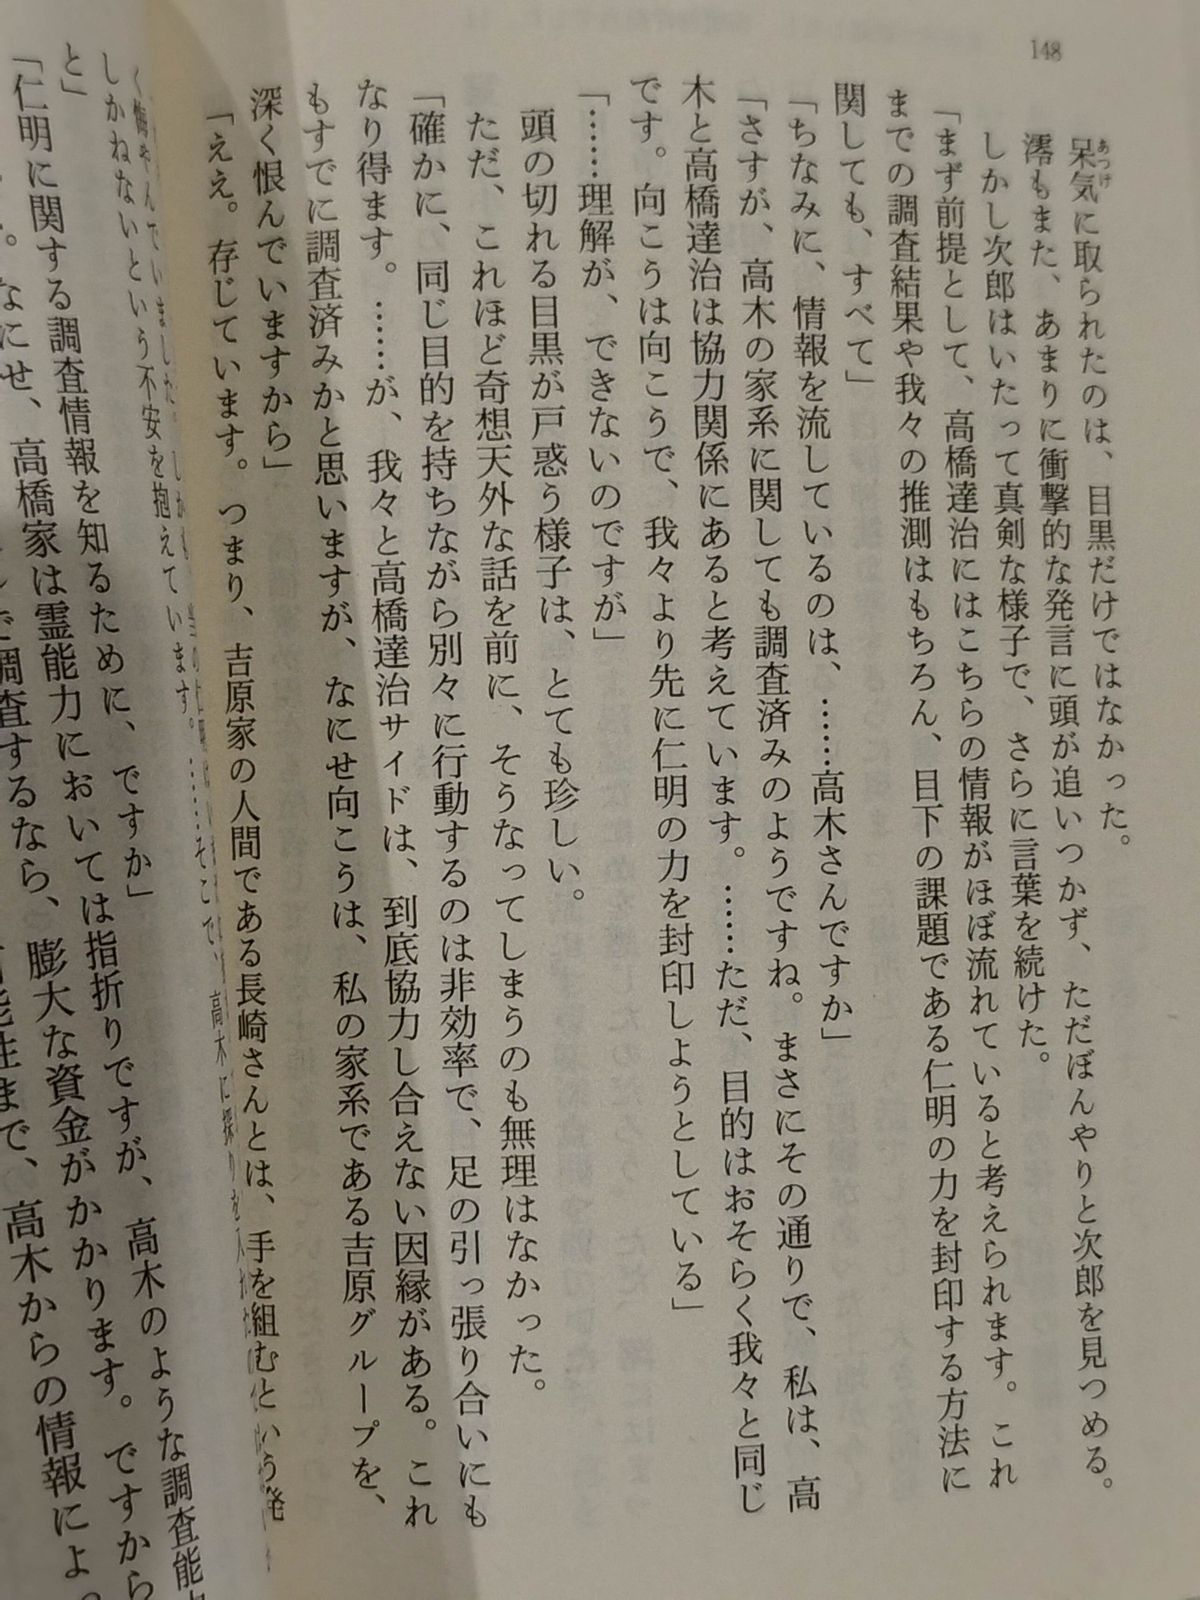 148
呆気に取られたのは、目黒だけではなかった。
あっけ
澪もまた、あまりに衝撃的な発言に頭が追いつかず、ただぼんやりと次郎を見つめる。
しかし次郎はいたって真剣な様子で、さらに言葉を続けた。
「まず前提として、高橋達治にはこちらの情報がほぼ流れていると考えられます。これ
までの調査結果や我々の推測はもちろん、目下の課題である仁明の力を封印する方法に
関しても、すべて」
「ちなみに、情報を流しているのは、……高木さんですか」
「さすが、高木の家系に関しても調査済みのようですね。まさにその通りで、私は、高
木と高橋達治は協力関係にあると考えています。……ただ、目的はおそらく我々と同じ
です。向こうは向こうで、我々より先に仁明の力を封印しようとしている」
「……理解が、できないのですが」
頭の切れる目黒が戸惑う様子は、とても珍しい。
ただ、これほど奇想天外な話を前に、そうなってしまうのも無理はなかった。
「確かに、同じ目的を持ちながら別々に行動するのは非効率で、足の引っ張り合いにも
なり得ます。……が、我々と高橋達治サイドは、到底協力し合えない因縁がある。これ
もすでに調査済みかと思いますが、なにせ向こうは、私の家系である吉原グループを、
深く恨んでいますから」
「ええ。存じています。つまり、吉原家の人間である長崎さんとは、手を組むという発
く悔やんでいました。しかも
しかねないという不安を抱えています。……そこで、高木に探りを入れ
と」
「仁明に関する調査情報を知るために、ですか」
なにせ、高橋家は霊能力においては指折りですが、高木のような調査能力
で調査するなら、膨大な資金がかかります。ですから
まで、高木からの情報によ